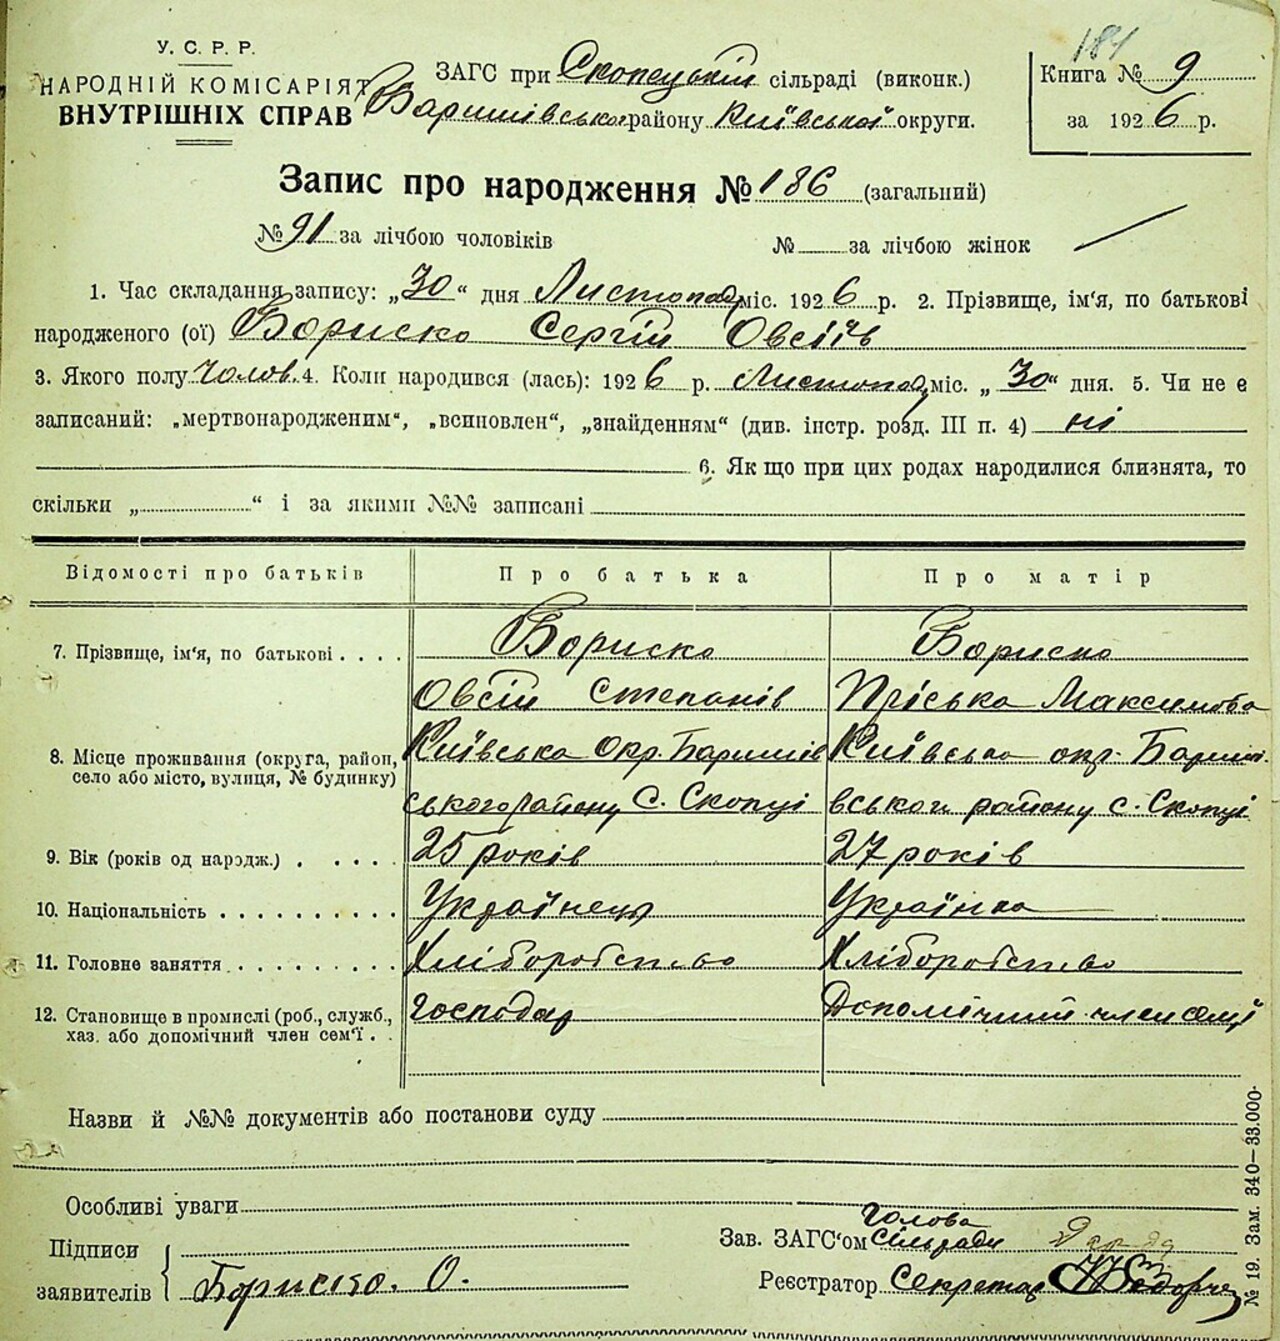 181
У. С. Р. Р.
НАРОДНІЙ КОМІСАРІЯТ
ВНУТРІШНІХ СПРАВ
ЗАГС при Скопецькій сільраді (виконк.)
Баришівського району Київської округи.
Книга № 9
за 1926 р.
Запис про народження № 186 (загальний)
№ 91 за лічбою чоловіків № за лічбою жінок
1. Час складання запису: „30“ дня Листопад міс. 1926 р. 2. Прізвище, ім'я, по батькові
народженого (ої) Бориско Сергій Овсіїв
3. Якого полу чолов. 4. Коли народився (лась): 1926 р. Листопад міс. „30“ дня. 5. Чи не є
записаний: „мертвонародженим“, „всиновлен“, „знайденням“ (див. інстр. розд. III п. 4) ні
6. Як що при цих родах народилися близнята, то
скільки „ “ і за якими №№ записані
Відомості про батьків Про батька Про матір
7. Прізвище, ім'я, по батькові . . . . Бориско Бориско
Овсій Степанів Пріська Максимова
8. Місце проживання (округа, район, Київська Окр. Баришів Київська окр. Бариш
село або місто, вулиця, № будинку) ського району С. Скопці вського району с. Скопці
9. Вік (років од народж.) . . . . . 25 років 27 років
10. Національність . . . . . . . . . . Українець Українка
11. Головне заняття . . . . . . . . . Хліборобство Хліборобство
12. Становище в промислі (роб., служб., Господар Допомічний член семї
хаз. або допомічний член сем'ї . .
Назви й №№ документів або постанови суду
Особливі уваги
Підписи
заявителів Бориско. О.
Голова
Зав. ЗАГС'ом Сільради
Реєстратор Секретар
№ 19. Зам. 340—33.000.